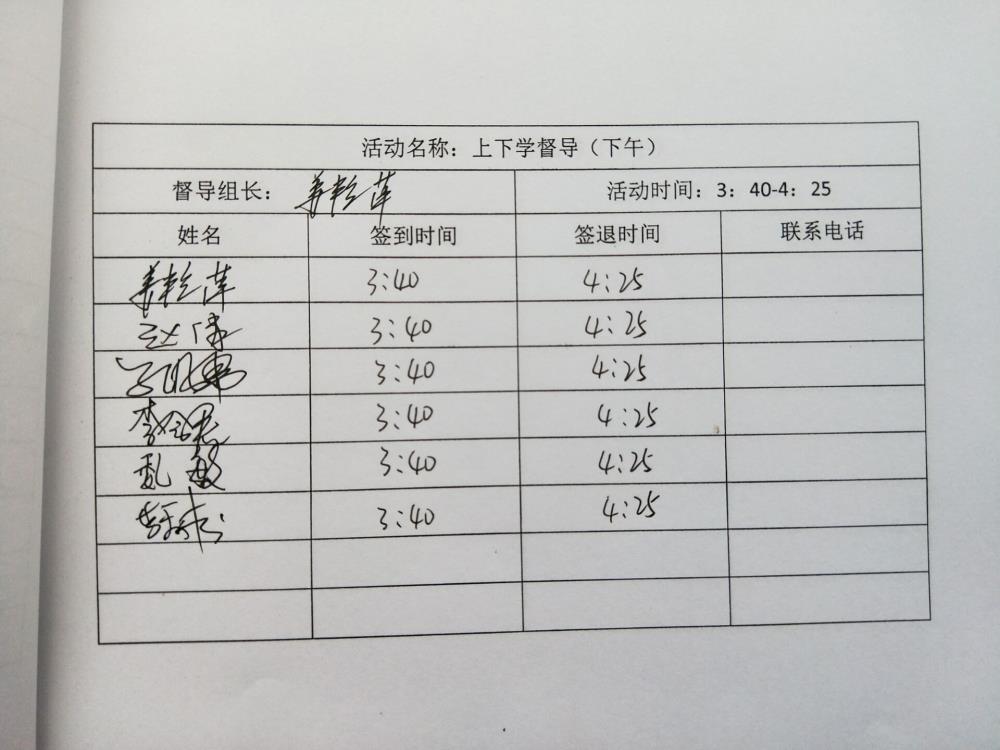 活动名称：上下学督导（下午）
督导组长： 活动时间：3：40-4：25
姓名 签到时间 签退时间 联系电话
3:40 4:25
3:40 4:25
3:40 4:25
3:40 4:25
3:40 4:25
3:40 4:25